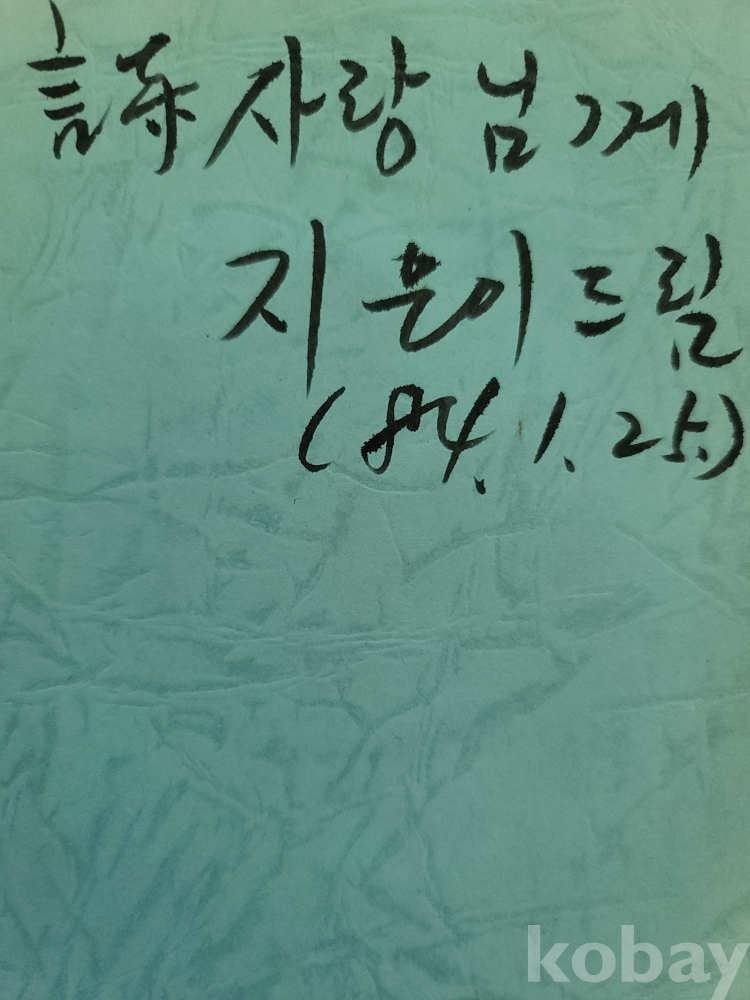 詩사랑 님께
지은이 드림
(84. 1. 25.)
kobay